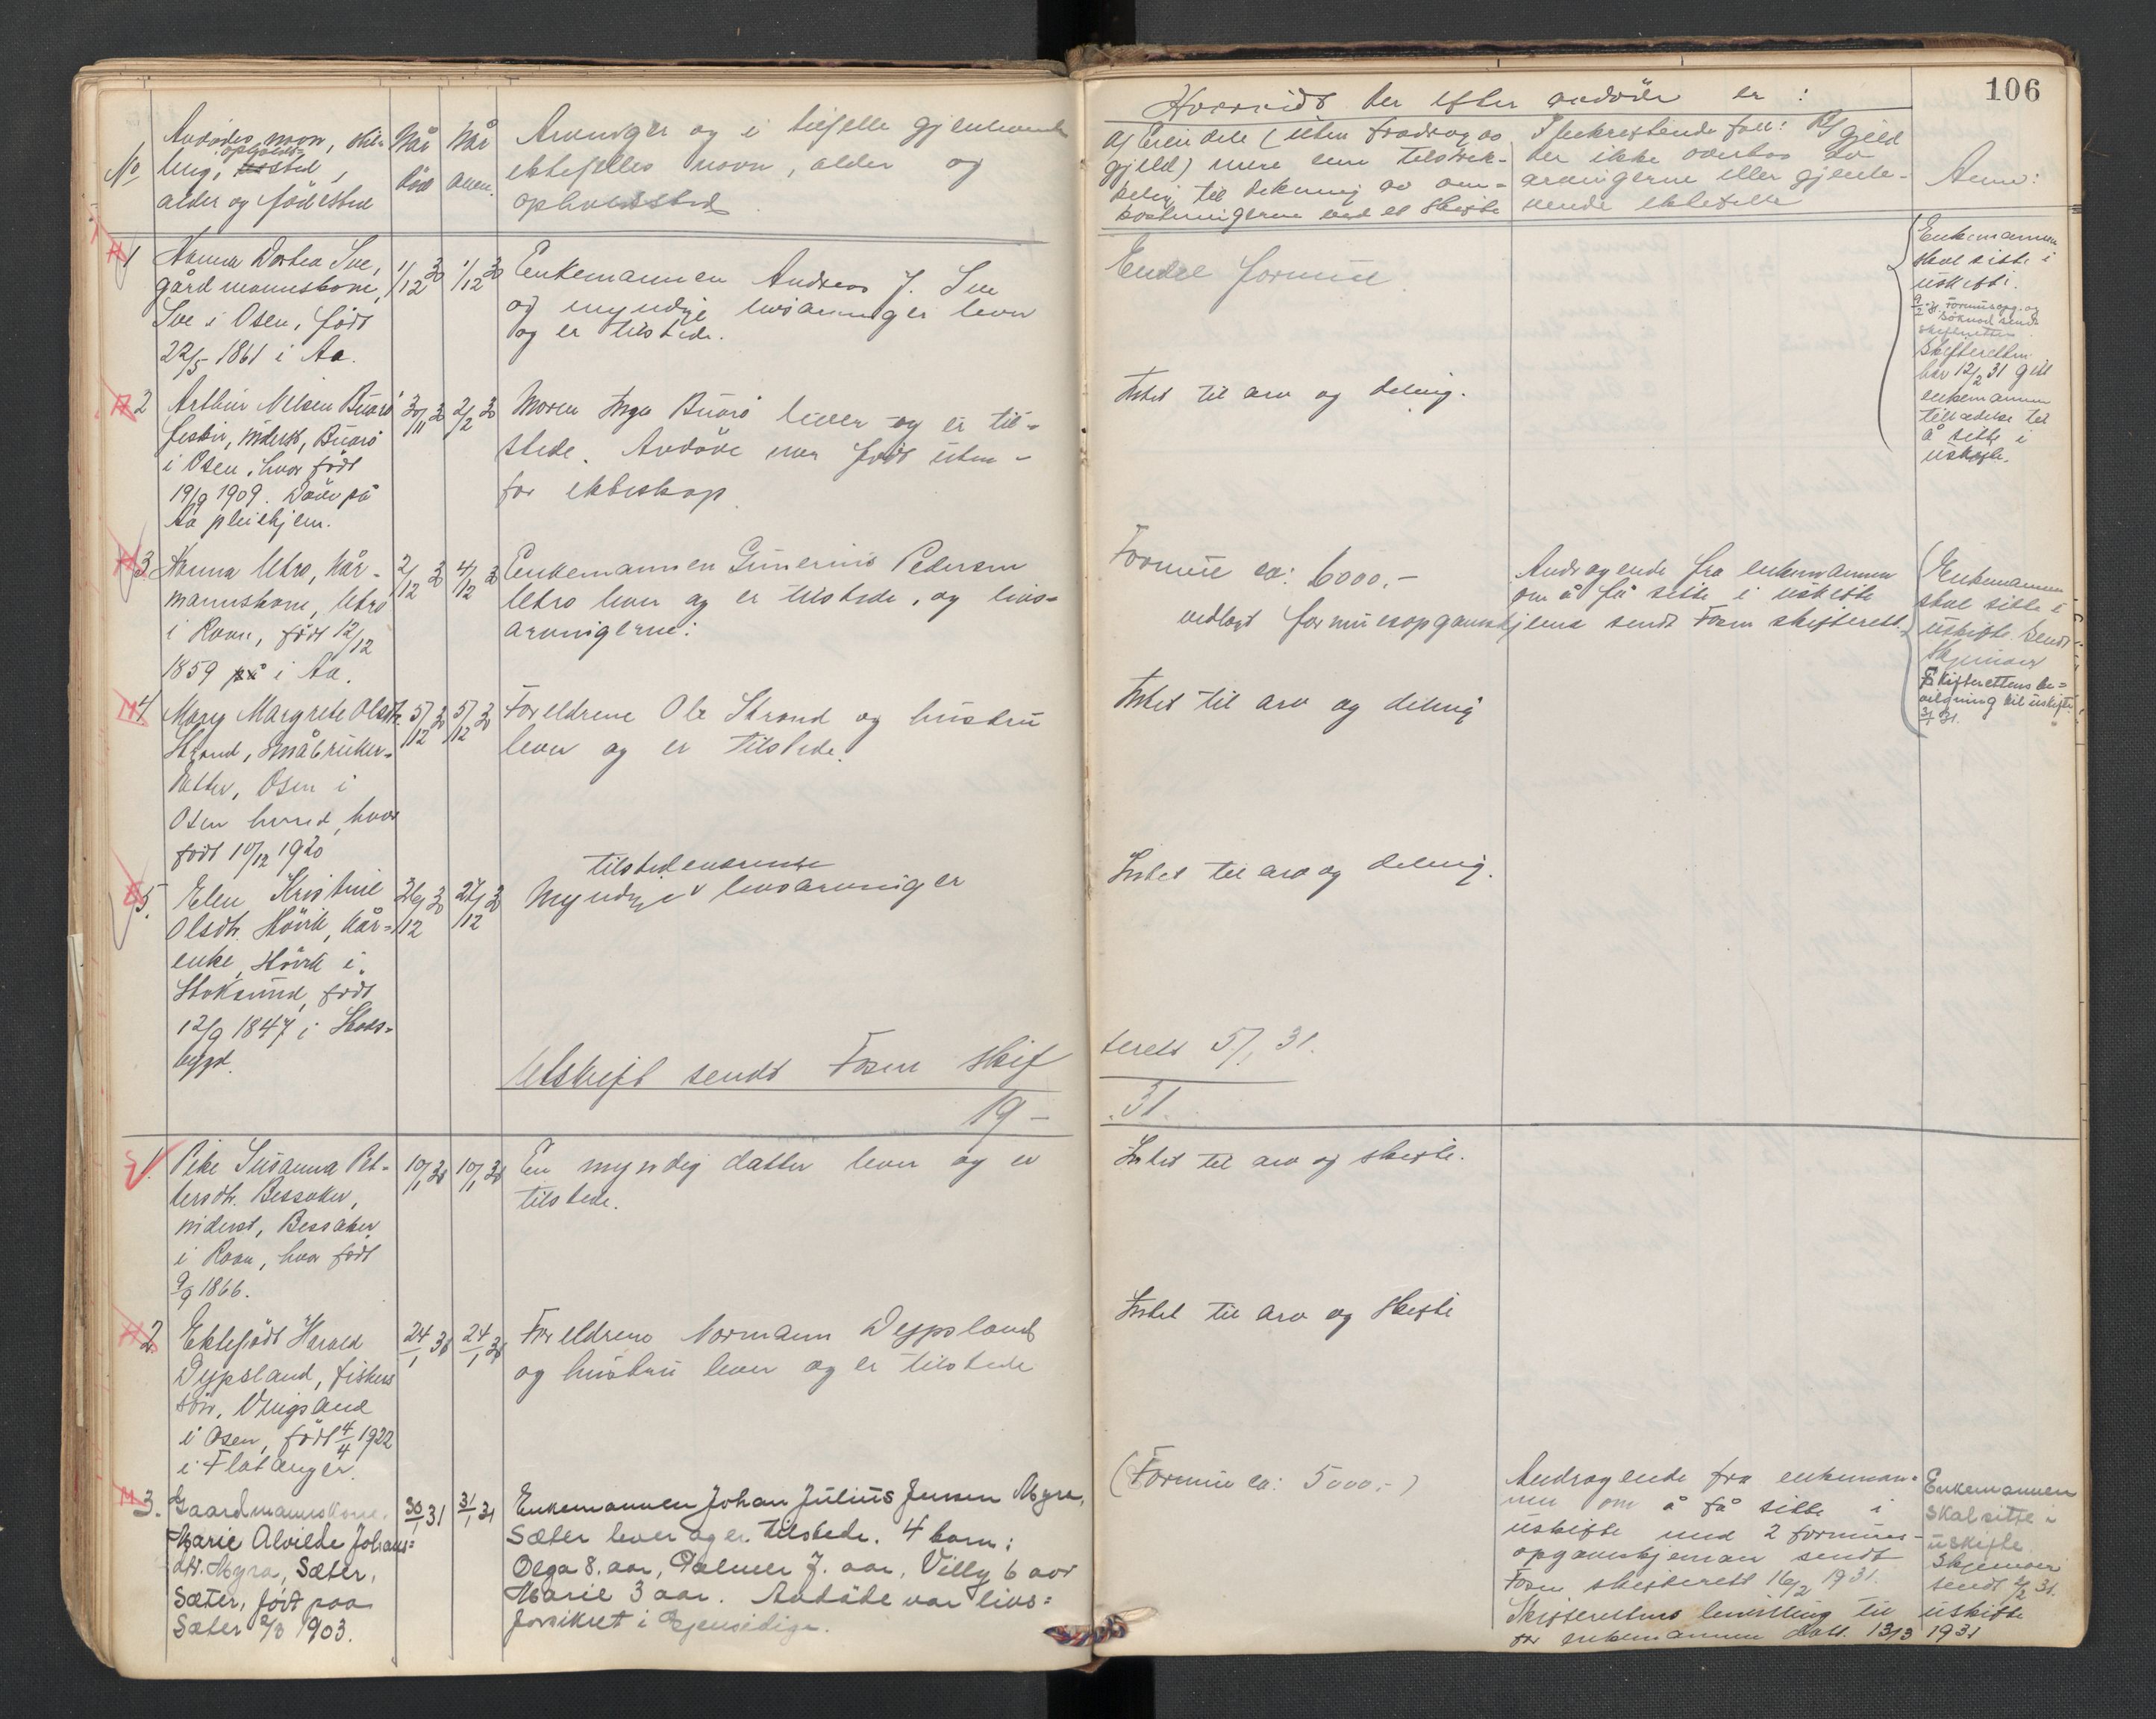 106
No
Avdødes navn, stil-
ling, opholds-
sted,
alder og fødested
Når
død
Når
anm.
Arvinger og i tilfelle gjenlevende
ektefelles navn, alder og
opholdssted
Hvorvidt der efter avdøde er :
a) Eiendele (uten fradrag av
gjeld) mere enn tilstrek-
kelig til dekning av om-
kostningerne ved et skifte
I bekreftende fall: b) gjeld
der ikke overtas av
arvingerne eller gjenle-
vende ektefelle
Anm:
1
Hanna Dortea Sve,
gårdmannskone,
Sve i Osen, født
22/5 1861 i Aa.
1/12 30
1/12 30
Enkemannen Andreas J. Sve
og myndige livsarvinger lever
og er tilstede.
Endel formue.
Enkemannen
skal sitte i
uskifte.
9/2 31. Formuesopg. og
søknad sendt
skifteretten
Skifteretten
har 12/2 31 gitt
enkemannen
tilladelse til
å sitte i
uskifte.
2
Arthur Nelsen Buarö
fisker, inderst, Buarö
i Osen, hvor født
19/9 1909. Døde på
Aa pleiehjem.
30/11 30
2/2 30
Moren Inga Buarö lever og er til-
stede. Avdöde var født uten-
for ekteskap
Intet til arv og deling.
3
Hanna Utro, kår-
mannskone, Utro
i Roan, født 12/12
1859 på i Aa.
2/12 30
4/12 30
Enkemannen Gunerius Pedersen
Utro lever og er tilstede, og livs-
arvingerne.
Formue ca: 6000.-
Andragende fra enkemannen
om å få sitte i uskifte
vedlagt formuesopgaveskjema sendt Fosen skifterett.
Enkemannen
skal sitte i
uskifte. Sendt
skjemaer
Skifterettens be-
vilgning til uskifte
3/1 31.
4
Mary Margrete Olsdtr.
Strand, småbruker-
datter, Osen i
Osen herred, hvor
født 10/12 1920
5/12 30
5/12 30
Foreldrene Ole Strand og hustru
lever og er tilstede.
Intet til arv og deling
5.
Elen Kristine
Olsdtr. Hövik, kår-
enke, Hövik i
Stoksund, født
12/9 1847 i Stads-
bygd.
26/12 30
27/12 30
tilstedeværende
Myndige v livsarvinger
Intet til arv og deling.
Utskrift sendt Fosen skif
terett 5/1 31.
19 -
31.
1.
Pike Susanna Pet-
tersdtr. Bessaker,
inderst, Bessaker
i Roan, hvor født
9/9 1866.
10/1 30
10/1 30
En myndig datter lever og er
tilstede.
Intet til arv og skifte.
2
Ektefødt Harald
Dypsland, fiskers
sön, Vingsand
i Osen, født 4/4 1922
i Flatanger.
24/1 30
24/1 30
Foreldrene Normann Dypsland
og hustru lever og er tilstede
Intet til arv og skifte
3.
Gaardmannskone
Marie Alvilde Johans=
dtr. Myra, Sæter,
Sæter, født paa
Sæter 2/3 1903.
30/1 31
31/1 31
Enkemannen Johan Julius Jensen Myra,
Sæter lever og er tilstede. 4 barn:
Olga 8. aar, Palmer 7. aar, Villy 6 aar
Marie 3 aar. Avdøde var livs=
forsikret i Gjensidige.
(Formue ca: 5000,-)
Andragende fra enkeman-
nen om å få sitte i
uskifte med 2 formues-
opgaveskjemaer sendt
Fosen skifterett 16/2 1931.
Skifterettens bevilling til uskifte
for enkemannen datt. 13/3 1931
Enkemannen
skal sitte i
uskifte.
Skjemaer
sendt 2/2 31.